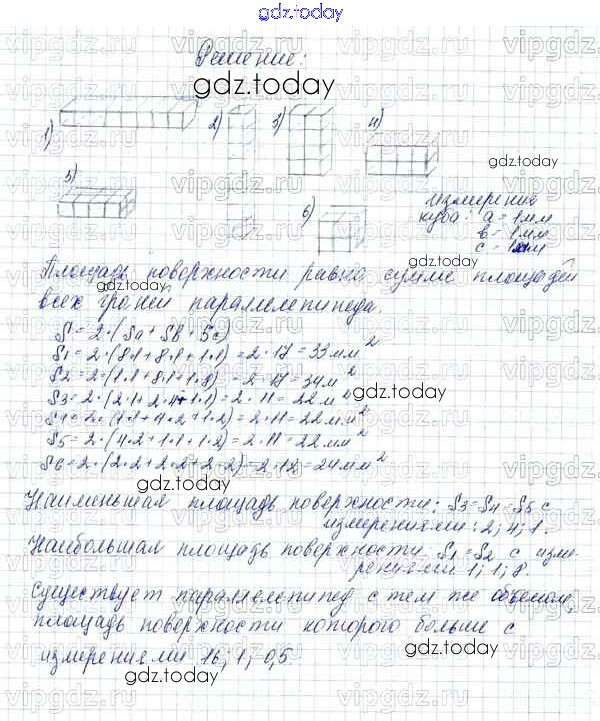 gdz.today
Решение:
gdz.today
1)
2)
3)
4)
gdz.today
5)
6)
Измерение
куба: a = 1мм
в = 1мм
с = 1мм
Площадь поверхности равна сумме площадей
gdz.today
всех граней параллелепипеда.
S = 2·(Sa + Sb + Sc)
S1 = 2·(8·1+8·1+1·1) = 2·17 = 33мм²
S2 = 2·(1·1+8·1+1·8) = 2·17 = 34м²
gdz.today
S3 = 2·(2·1+2·4+1·1) = 2·11 = 22мм²
S4 = 2·(1·1+4·2+1·2) = 2·11 = 22мм²
S5 = 2·(4·2+1·1+1·2) = 2·11 = 22мм²
S6 = 2·(2·2+2·2+2·2) = 2·12 = 24мм²
gdz.today
Наименьшая площадь поверхности: S3=S4=S5 с
измерениями: 2; 4; 1.
gdz.today
Наибольшая площадь поверхности S1=S2 с изме-
рениями 1; 1; 8.
gdz.today
Существует параллелепипед с тем же объемом,
площадь поверхности которого больше с
измерениями 16; 1; 0,5
gdz.today